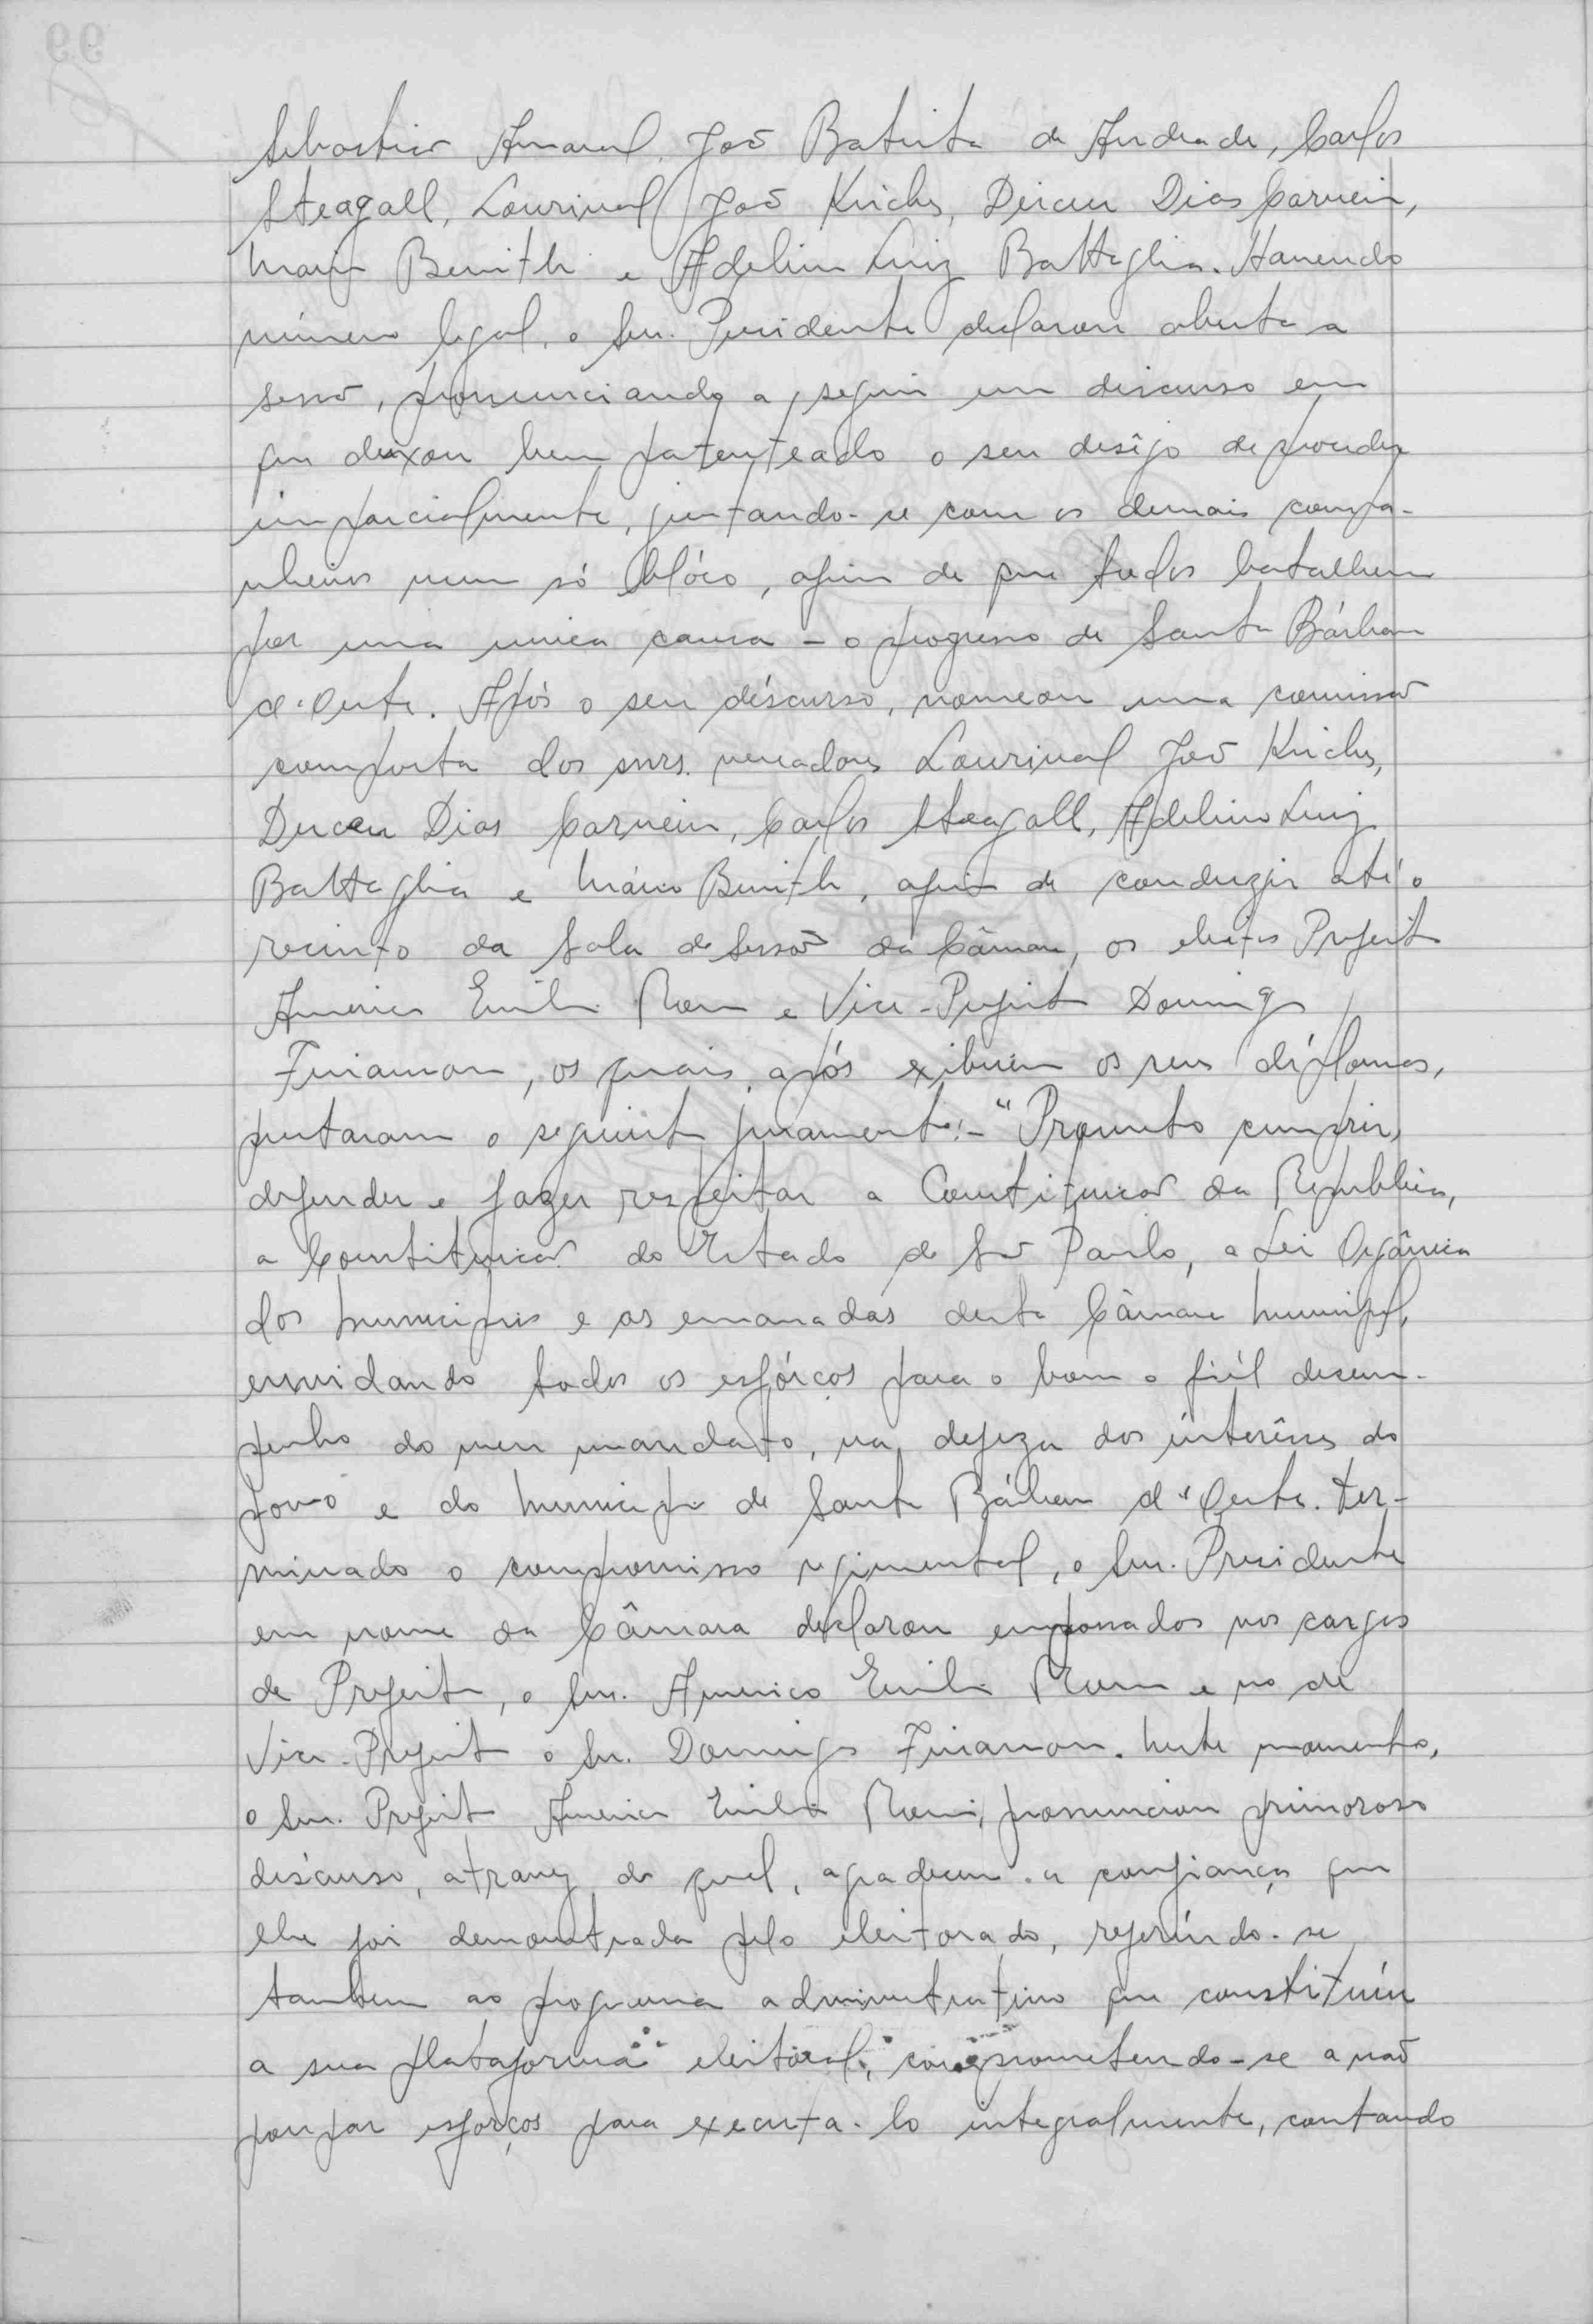 Sebastião Amaral, João Batista de Andrade, Carlos
Steagall, Lourival João Kriches, Dirceu Dias Carneiro,
Mário Benith e Adelino Luiz Battaglia. Havendo
número legal, o Snr. Presidente declarou aberta a
sessão, pronunciando a seguir um discurso em
que deixou bem patenteado o seu desêjo de proceder
imparcialmente, juntando-se com os demais compa-
nheiros num só blóco, afim de que todos batalhem
por uma unica causa - o progresso de Santa Bárbara
d'Oeste. Após o seu discurso, nomeou uma comissão
composta dos snrs. vereadores Lourival João Kriches,
Dirceu Dias Carneiro, Carlos Steagall, Adelino Luiz
Battaglia e Mário Benith, afim de conduzir até o
recinto da Sala de Sessão da Câmara, os eleitos Prefeito
Americo Emilio Romi e Vice-Prefeito Domingos
Finamore, os quais, após exibirem os seus diplomas,
prestaram o seguinte juramento:- "Prometo cumprir,
defender e fazer respeitar a Constituição da Republica,
a Constituição do Estado de São Paulo, a Lei Orgânica
dos Municipios e as emanadas desta Câmara Municipal,
envidando todos os esfórços para o bom e fiél desem-
penho do meu mandato, na defeza dos interêsses do
povo e do Municipio de Santa Bárbara d'Oeste. Ter-
minado o compromisso regimental, o Snr. Presidente
em nome da Câmara declarou empossados nos cargos
de Prefeito, o Snr. Americo Emilio Romi e no de
Vice-Prefeito o Snr. Domingos Finamore. Neste momento,
o Snr. Prefeito Americo Emilio Romi, pronunciou primoroso
discurso, atravez do qual, agradeceu a confiança que
lhe foi demonstrada pelo eleitorado, referindo-se
tambem ao programa administrativo que constituiu
a sua plataforma eleitoral, comprometendo-se a não
poupar esforços para executa-lo integralmente, contando